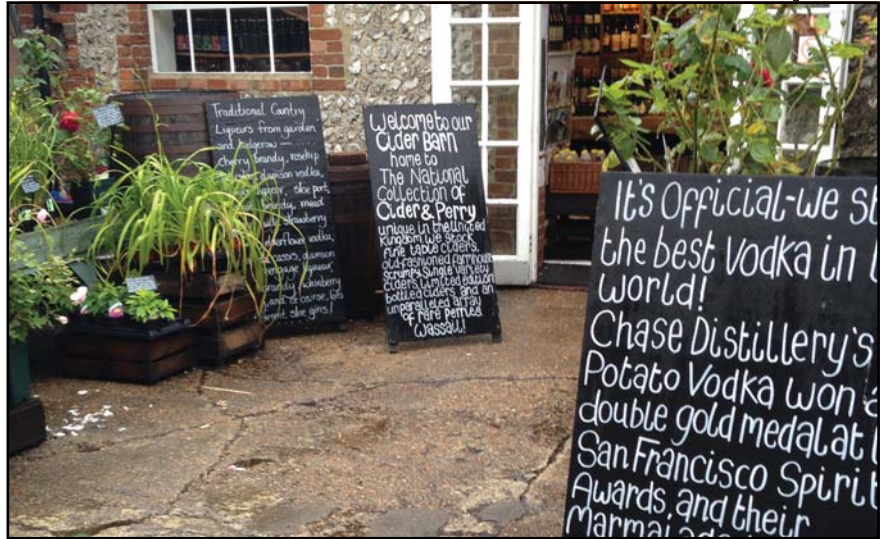 Traditional Country
Liqueurs from garden
and
cherry brandy, rosehip
damson vodka,
sloe port,
brandy, mead
strawberry
elderflower vodkas,
damson
liqueur,
brandy, whinberry
and of course, lots
sloe gins!
Welcome to our
Cider Barn
home to
The National
Collection of
Cider & Perry
unique in the United
Kingdom. We stock
fine table ciders
old-fashioned farmhouse
scrumpy, single variety
ciders, limited edition
bottled ciders, and an
unparalleled array
of rare perries
Wassail!
It's Official-we st
the best Vodka in
world!
Chase Distillery's
Potato Vodka won a
double gold medal at
San Francisco Spirit
Awards, and their
Marmalade